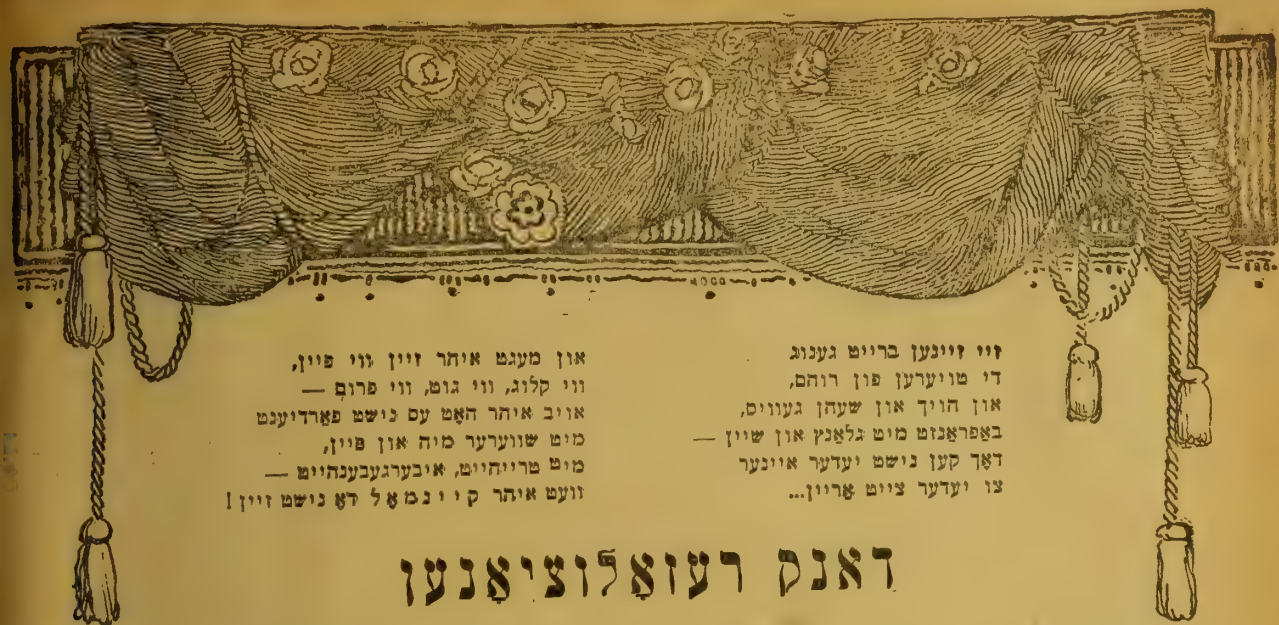 זיי זיינען ברייט גענוג
די טויערען פון רוהם,
און הויך און שעהן געוויס,
באַפראַנזט מיט גלאַנץ און שיין —
דאָך קען נישט יעדער איינער
צו יעדער צייט אַריין...
און מעגט איהר זיין ווי פיין,
ווי קלוג, ווי גוט, ווי פרום —
אויב איהר האָט עס נישט פאַרדיענט
מיט שווערער מיה און פּיין,
מיט טרייהייט, איבערגעבענהייט —
וועט איהר קיינמאָל דאָ נישט זיין!
דאנק רעזאָלוציאָנען